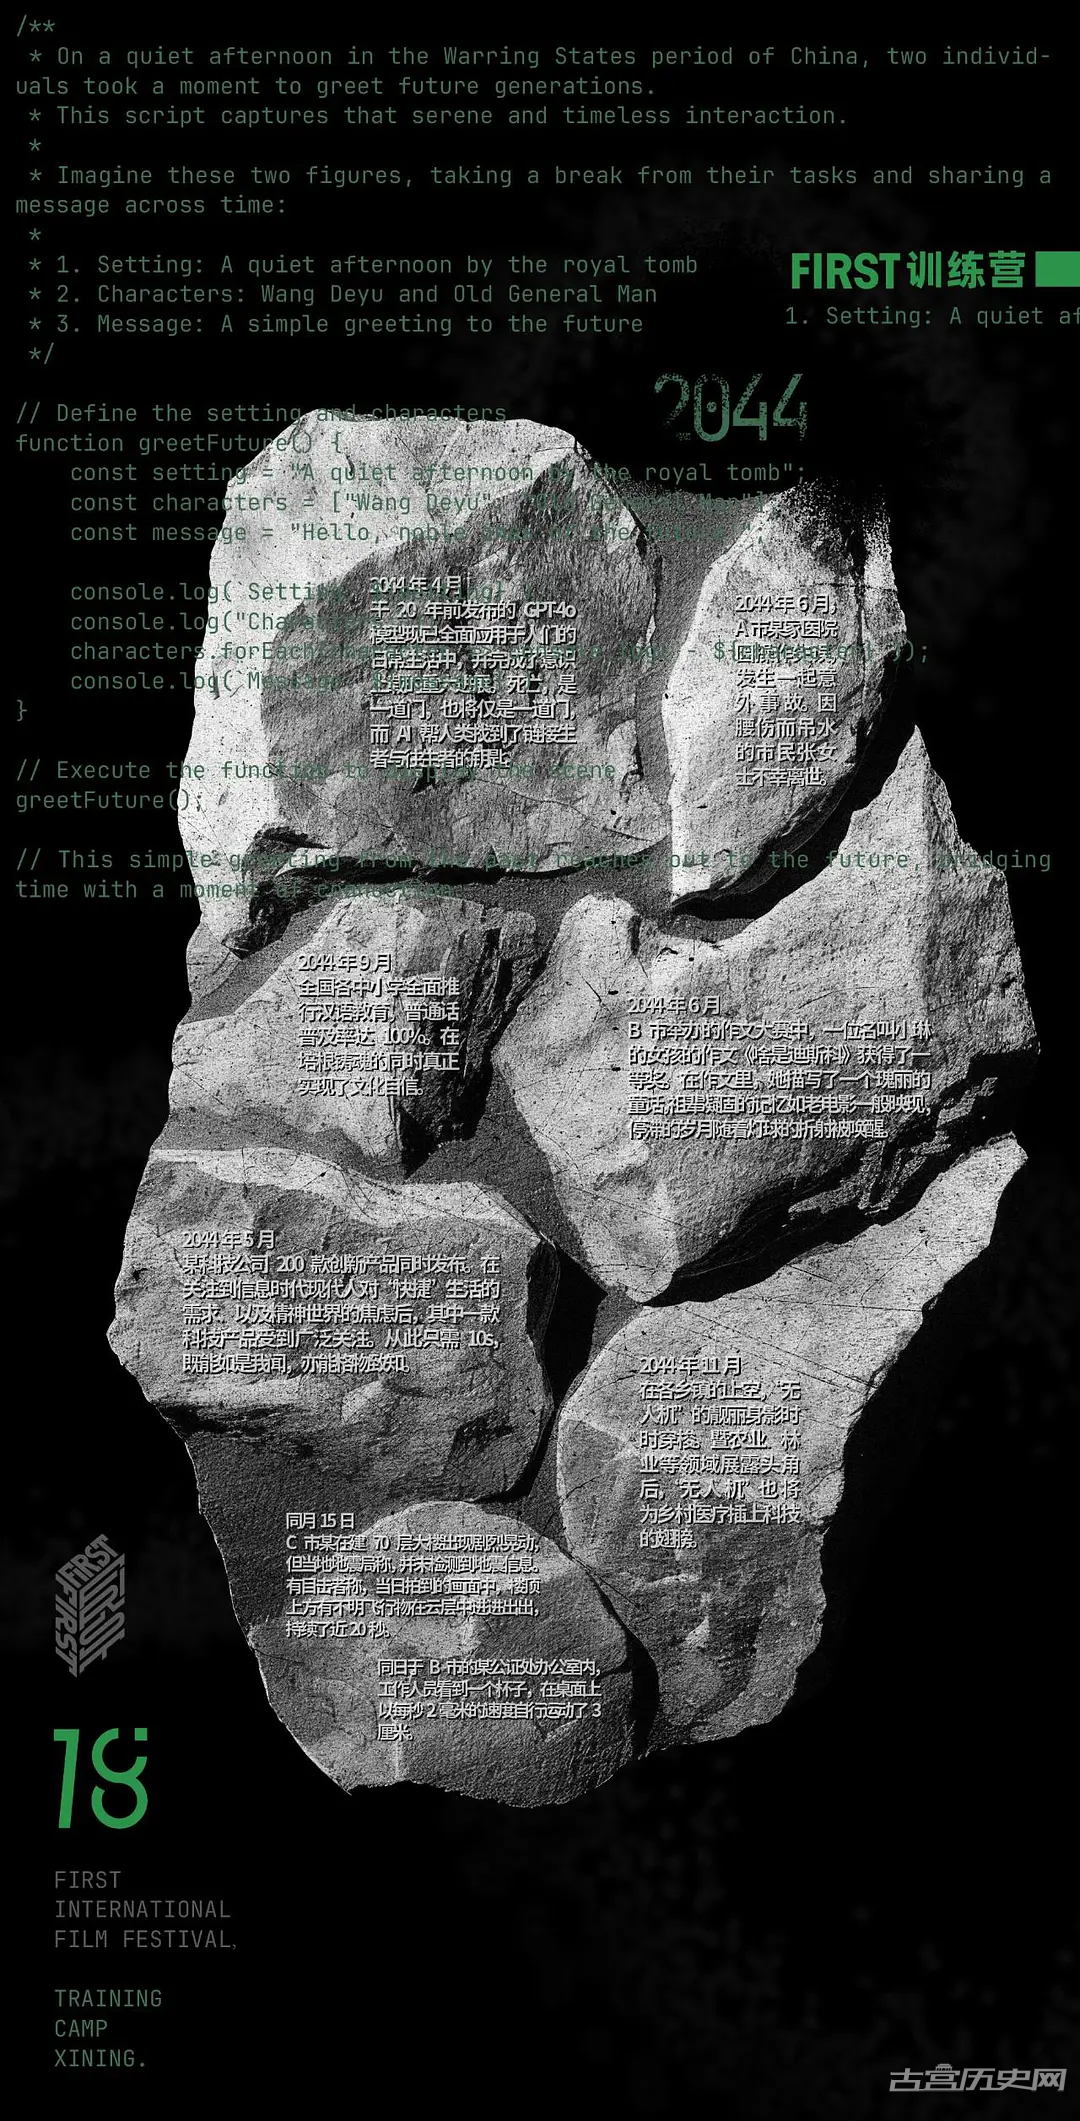 /**
* On a quiet afternoon in the Warring States period of China, two individ-
uals took a moment to greet future generations.
* This script captures that serene and timeless interaction.
*
* Imagine these two figures, taking a break from their tasks and sharing a
message across time:
*
* 1. Setting: A quiet afternoon by the royal tomb
* 2. Characters: Wang Deyu and Old General Man
* 3. Message: A simple greeting to the future
*/
FIRST训练营
1. Setting: A quiet af
2044
// Define the setting and characters
function greetFuture() {
const setting = "A quiet afternoon by the royal tomb";
const characters = ["Wang Deyu", "Old General Man"];
const message = "Hello, noble
console.log(`Setting:
console.log("Characters
characters.forEach - ${ });
console.log(`Message:
}
// Execute the function to display the scene
greetFuture();
// This simple greeting from the past reaches out to the future, bridging
time with a moment of connection.
2044 年 4 月
于 20 年前发布的 GPT-4o
模型现已全面应用于人们的
日常生活中，并完成了意识
死亡，是
一道门，也将仅是一道门，
而 AI 帮人类找到了链接生
者与往生者的钥匙。
2044 年 6 月，
A 市某家医院
发生一起意
外事故。因
腰伤而吊水
的市民张女
士不幸离世。
2044 年 9 月
全国各中小学全面推
行汉语教育，普通话
普及率达 100%。在
培根铸魂的同时真正
实现了文化自信。
2044 年 6 月
B 市举办的作文大赛中，一位名叫小琳
的女孩的作文《啥是迪斯科》获得了一
等奖。在作文里，她描写了一个瑰丽的
童话,祖辈凝固的记忆如老电影一般映现,
停滞的岁月随着灯球的折射被唤醒。
2044 年 5 月
某科技公司 200 款创新产品同时发布。在
关注到信息时代现代人对“快捷”生活的
需求、以及精神世界的焦虑后，其中一款
科技产品受到广泛关注。从此只需 10s，
既能如是我闻，亦能格物致知。
2044 年 11 月
在各乡镇的上空，“无
人机”的靓丽身影时
时穿梭。暨农业、林
业等领域展露头角
后，“无人机”也将
为乡村医疗插上科技
的翅膀。
同月 15 日
C 市某在建 70 层大楼出现剧烈晃动，
但当地地震局称，并未检测到地震信息。
有目击者称，当日拍到的画面中，楼顶
上方有不明飞行物在云层中进进出出，
持续了近 20 秒。
同日于 B 市的某公证处办公室内，
工作人员看到一个杯子，在桌面上
以每秒 2 毫米的速度自行运动了 3
厘米。
FIRST
18
FIRST
INTERNATIONAL
FILM FESTIVAL,
TRAINING
CAMP
XINING.
古宫历史网